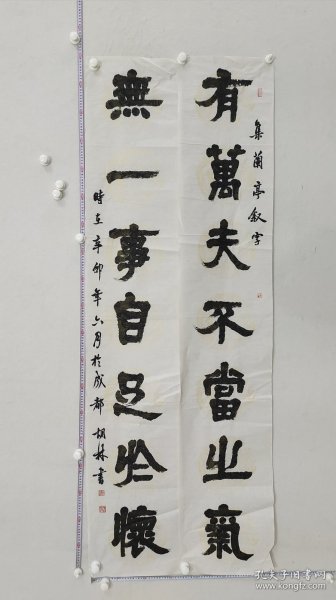 集蘭亭叙字
有萬夫不當之氣
無一事自足於懷
時在辛卯年六月於成都 胡林書
孔夫子旧书网